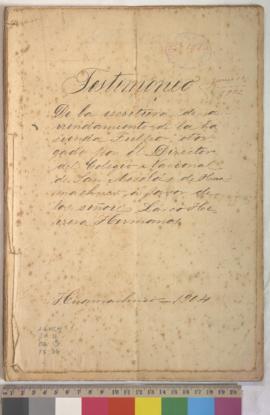 Testimonio
De la escritura de a
rrendamiento de la ha
cienda Tulpo, otor
gado por el Director
del Colegio Nacional
de San Nicolás de Hua
machuco, á favor de
los señores
Hermanos
Huamachuco 1904